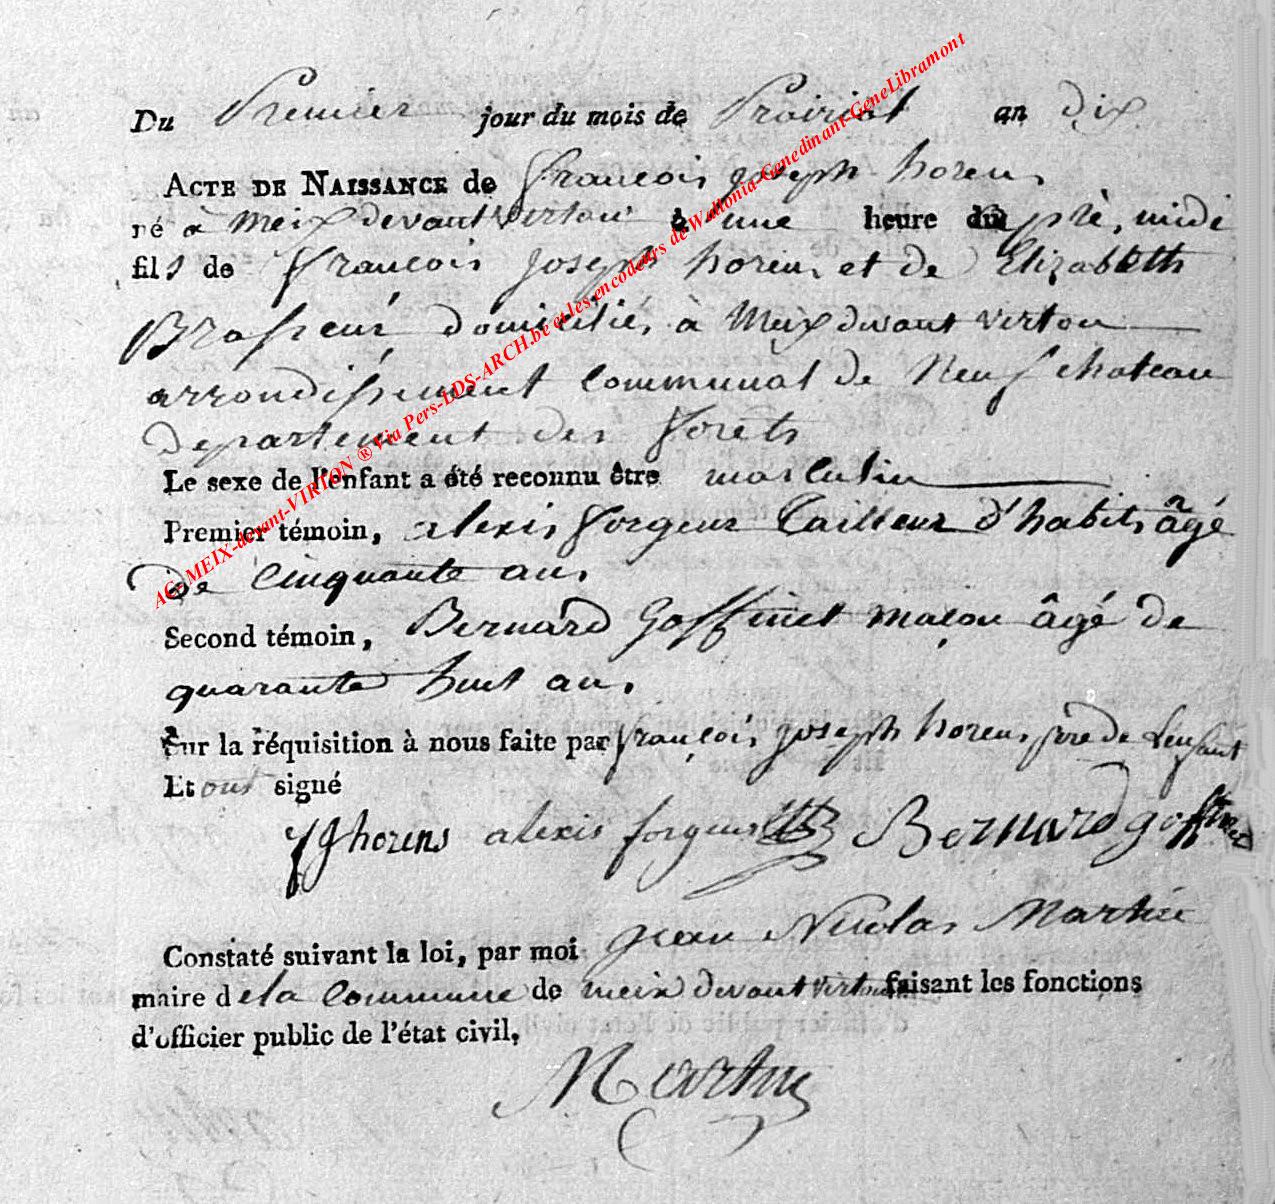 Du Premier jour du mois de Prairial an dix
ACTE DE NAISSANCE de françois joseph horens
né à Meix devant virton à une heure du aprè, midi
fils de françois joseph horens et de Elizabeth
Brasseur domicilié, à Meix devant virton
arrondissement communal de Neufchateau
departement des forêts
Le sexe de l'enfant a été reconnu être masculin
Premier témoin, alexis forgeur Tailleur d'habits âgé
de cinquante ans
Second témoin, Bernard Goffinet maçon âgé de
quarante huit ans
Sur la réquisition à nous faite par françois joseph horens père de Lenfant
Et ont signé
fjhorens alexis forgeur Bernard goffinet
Constaté suivant la loi, par moi jean Nicolas Martin
maire dela commune de meix devant virton faisant les fonctions
d'officier public de l'état civil.
Martin
AC-MEIX-devant-VIRTON ® Via Pers-LDS-ARCH.be et les encodeurs de Wallonia-Genedinant-GeneLibramont